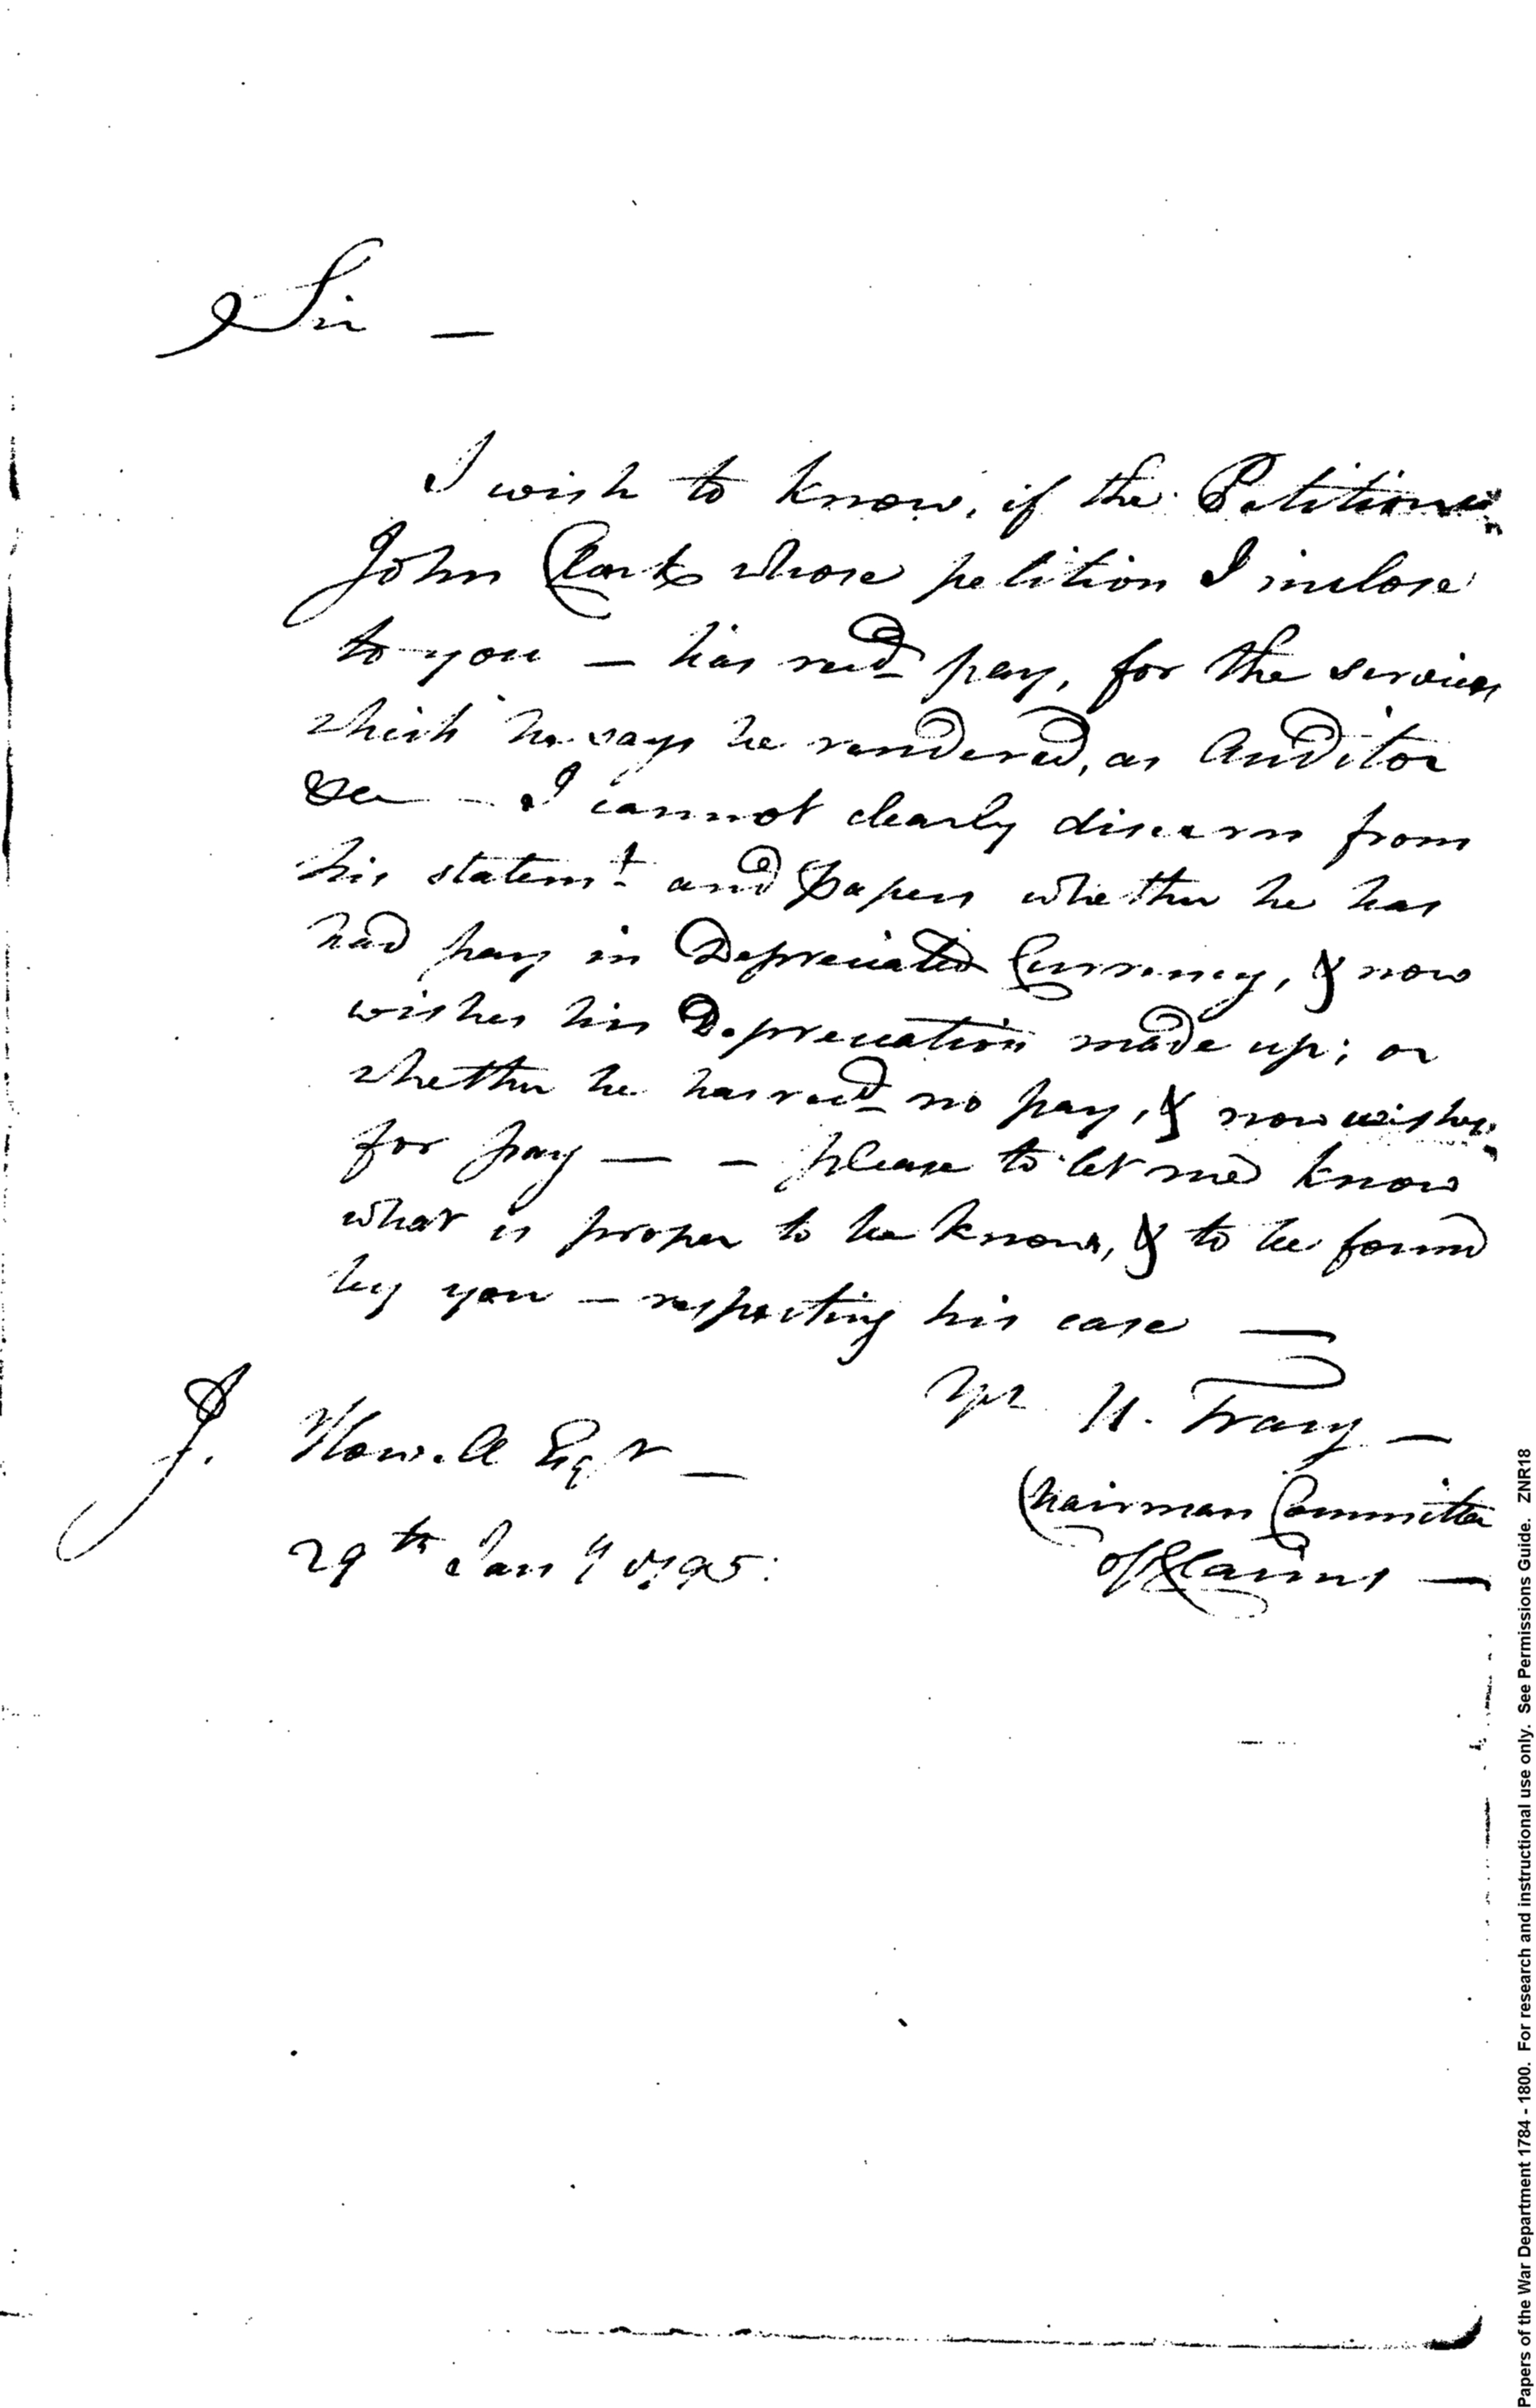 Sir —
I wish to know, if the Petitioner
John Clark whose petition I inclose
to you — has recd pay, for the services
which he says he rendered, as Auditor
&c — I cannot clearly discern from
his statemt. and papers whether he has
had pay in Depreciated Currency, & now
wishes his Depreciation made up; or
whether he has recd no pay, & now wishes
for pay — — please to let me know
what is proper to be known, & to be found
by you — respecting his case —
U. Tracy —
J. Howell Esqr —
Chairman Committee
29th Jany 1795:
of Claims —
Papers of the War Department 1784 - 1800. For research and instructional use only. See Permissions Guide. ZNR18